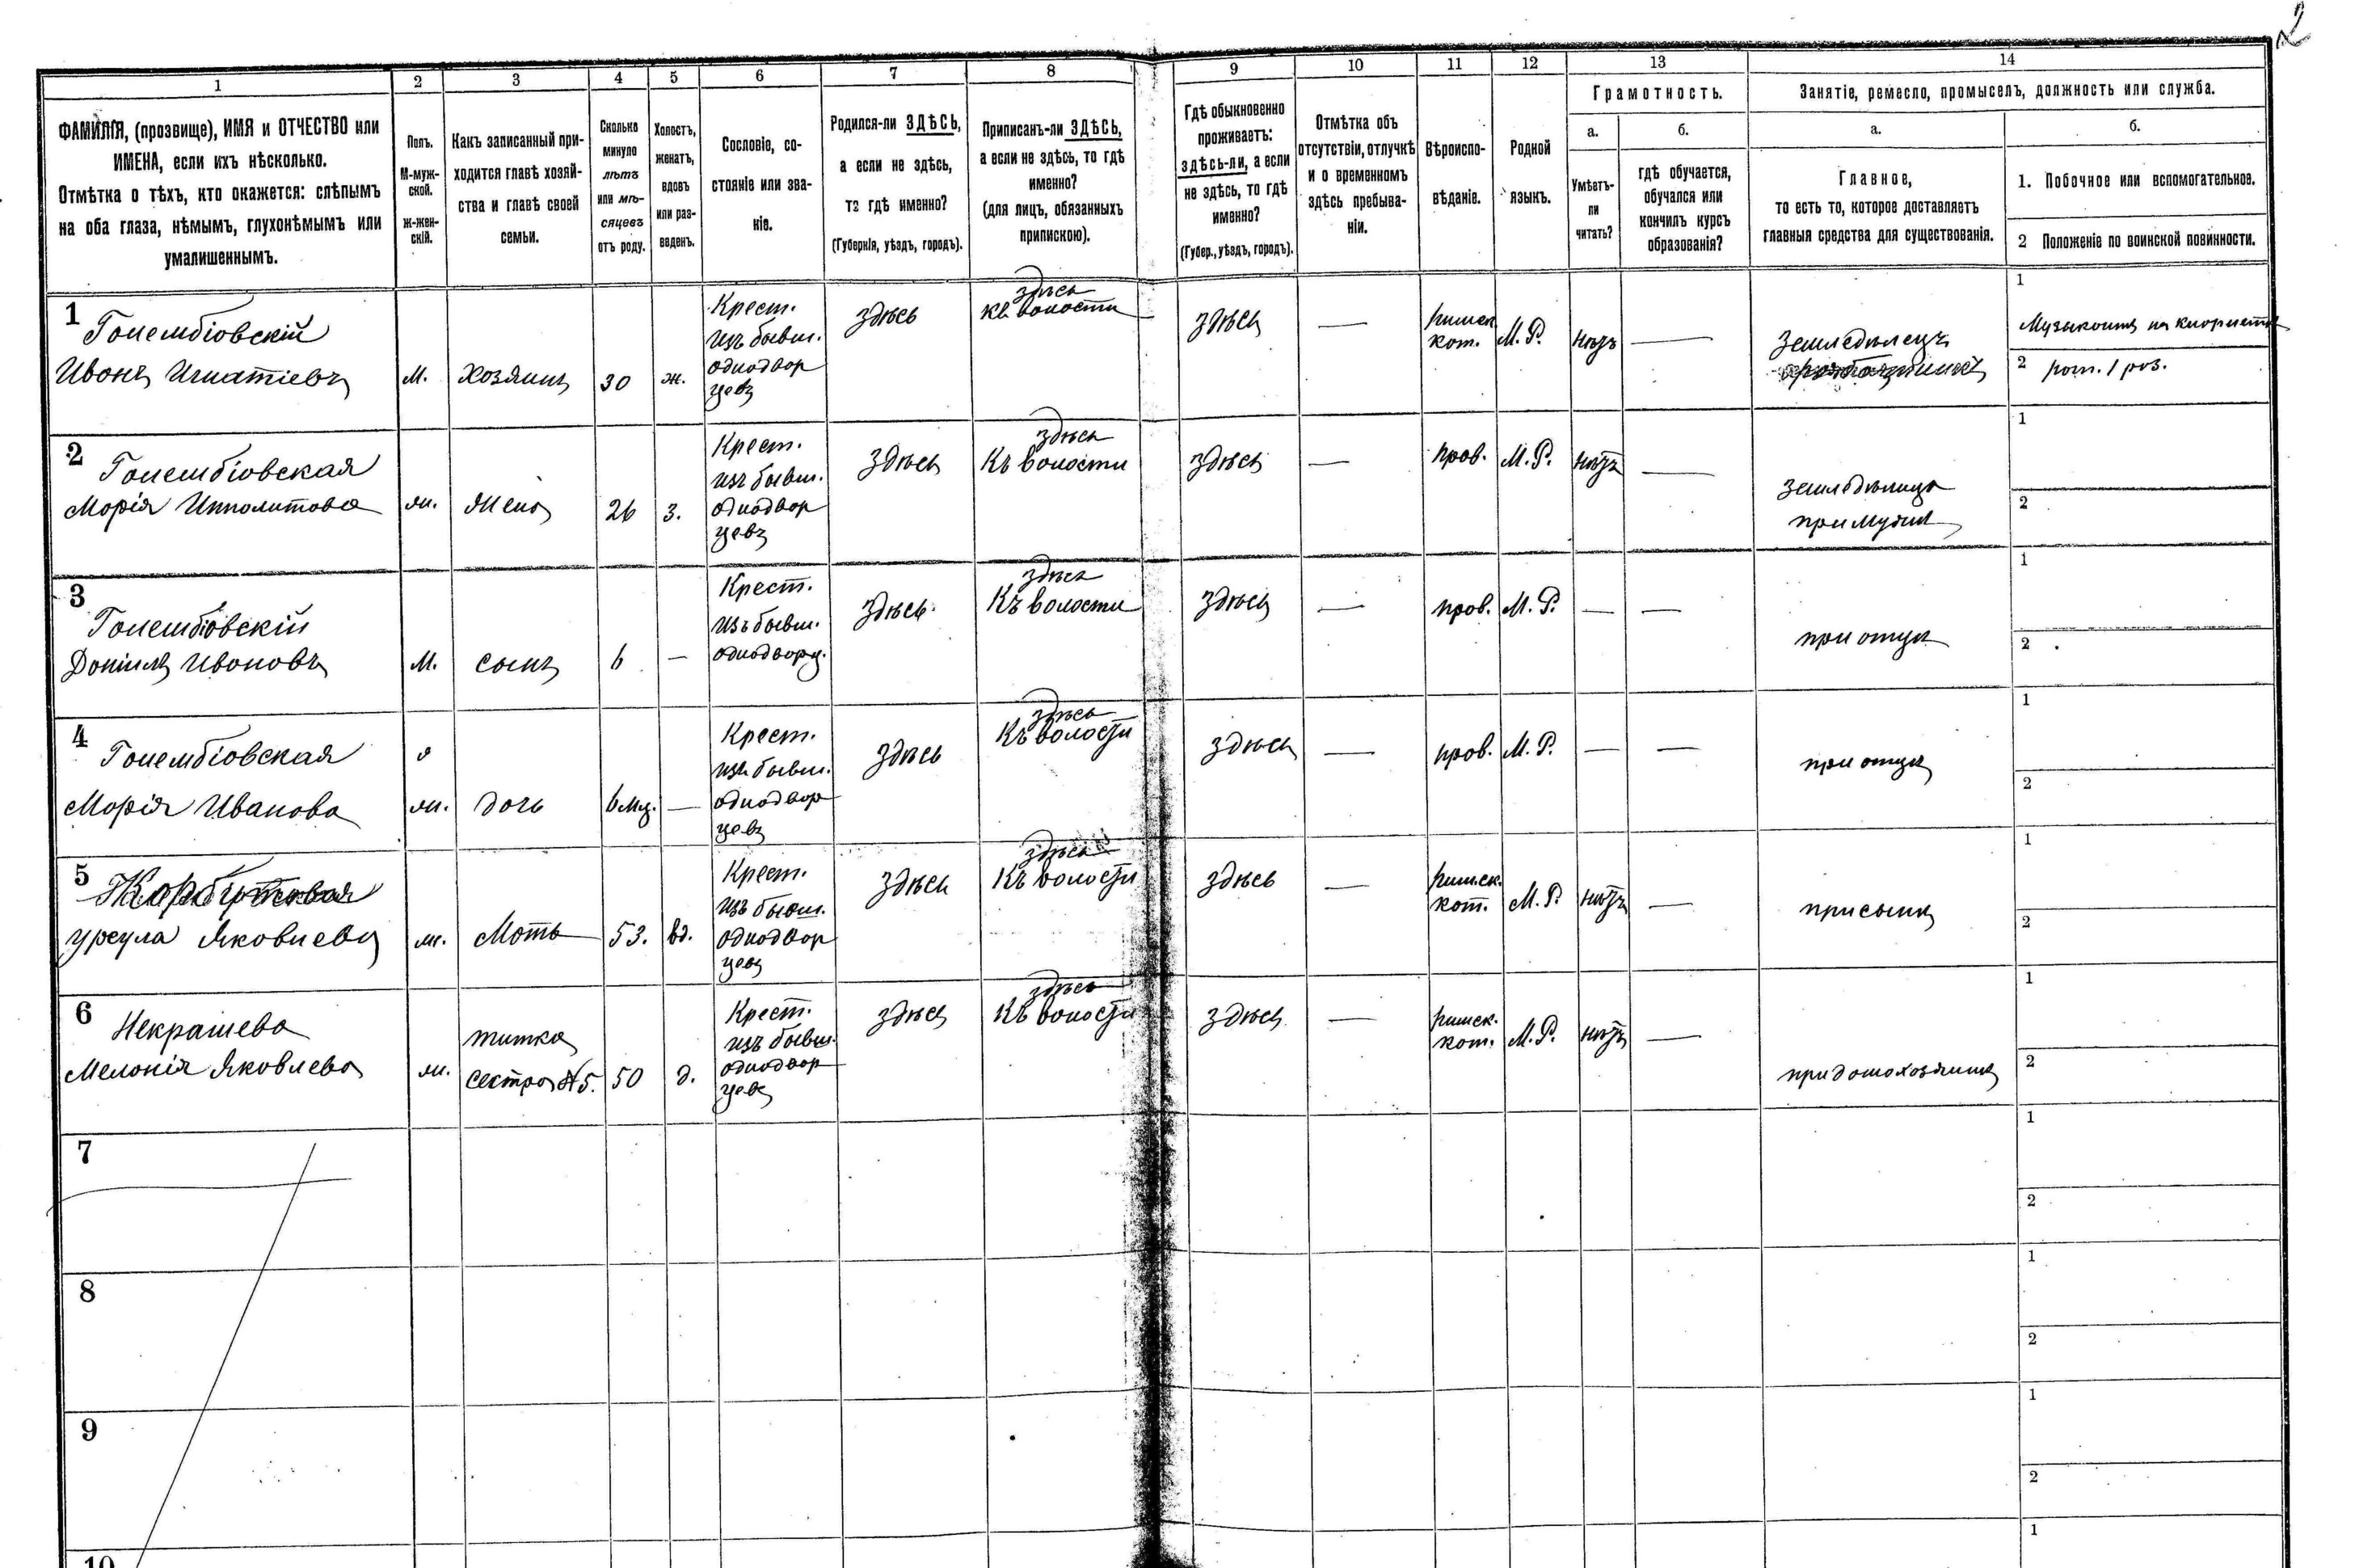 2
1 2 3 4 5 6 7 8 9 10 11 12 13 14
ФАМИЛІЯ, (прозвище), ИМЯ и ОТЧЕСТВО или
ИМЕНА, если ихъ нѣсколько.
Отмѣтка о тѣхъ, кто окажется: слѣпымъ
на оба глаза, нѣмымъ, глухонѣмымъ или
умалишеннымъ.
Полъ.
М-муж-
ской.
ж-жен-
скій.
Какъ записанный при-
ходится главѣ хозяй-
ства и главѣ своей
семьи.
Сколько
минуло
лѣтъ
или мѣ-
сяцевъ
отъ роду.
Холостъ,
женатъ,
вдовъ
или раз-
веденъ.
Сословіе, со-
стояніе или зва-
ніе.
Родился-ли ЗДѢСЬ,
а если не здѣсь,
то гдѣ именно?
(Губернія, уѣздъ, городъ).
Приписанъ-ли ЗДѢСЬ,
а если не здѣсь, то гдѣ
именно?
(для лицъ, обязанныхъ
припискою).
Гдѣ обыкновенно
проживаетъ:
здѣсь-ли, а если
не здѣсь, то гдѣ
именно?
(Губер., уѣздъ, городъ).
Отмѣтка объ
отсутствіи, отлучкѣ
и о временномъ
здѣсь пребыва-
ніи.
Вѣроиспо-
вѣданіе.
Родной
языкъ.
Грамотность.
а.
Умѣетъ-
ли
читать?
б.
гдѣ обучается,
обучался или
кончилъ курсъ
образованія?
Занятіе, ремесло, промыселъ, должность или служба.
а.
Главное,
то есть то, которое доставляетъ
главныя средства для существованія.
б.
1. Побочное или вспомогательное.
2 Положеніе по воинской повинности.
1
Голембіовскій
Иванъ Игнатіевъ
М.
хозяинъ
30
ж.
Крест.
изъ бывш.
однодвор
цевъ
здѣсь
здѣсь
къ волости
здѣсь
—
римск.
кат.
М. Р.
нѣтъ
—
Земледѣлецъ
1
Музыкантъ на кларнетѣ
2 рат. 1 раз.
2
Голембіовская
Марія Ипполитова
ж.
Жена
26
з.
Крест.
изъ бывш.
однодвор
цевъ
здѣсь
здѣсь
Къ волости
здѣсь
—
прав.
М. Р.
нѣтъ
—
земледѣлица
при мужѣ
1
2
3
Голембіовскій
Даніилъ Ивановъ
М.
сынъ
6
—
Крест.
изъ бывш.
однодворц.
здѣсь
здѣсь
Къ волости
здѣсь
—
прав.
М. Р.
—
—
при отцѣ
1
2
4
Голембіовская
Марія Иванова
ж.
дочь
6 мц.
—
Крест.
изъ бывш.
однодвор
цевъ
здѣсь
здѣсь
Къ волости
здѣсь
—
прав.
М. Р.
—
—
при отцѣ
1
2
5
Урсула Яковлева
ж.
Мать
53.
вд.
Крест.
изъ бывш.
однодвор
цевъ
здѣсь
здѣсь
Къ волости
здѣсь
—
римск.
кат.
М. Р.
нѣтъ
—
при сынѣ
1
2
6
Некрашева
Меланія Яковлева
ж.
титка
сестра №5.
50
д.
Крест.
изъ бывш.
однодвор
цевъ
здѣсь
здѣсь
Къ волости
здѣсь
—
римск.
кат.
М. Р.
нѣтъ
—
при домохозяинѣ
1
2
7
1
2
8
1
2
9
1
2
10
1